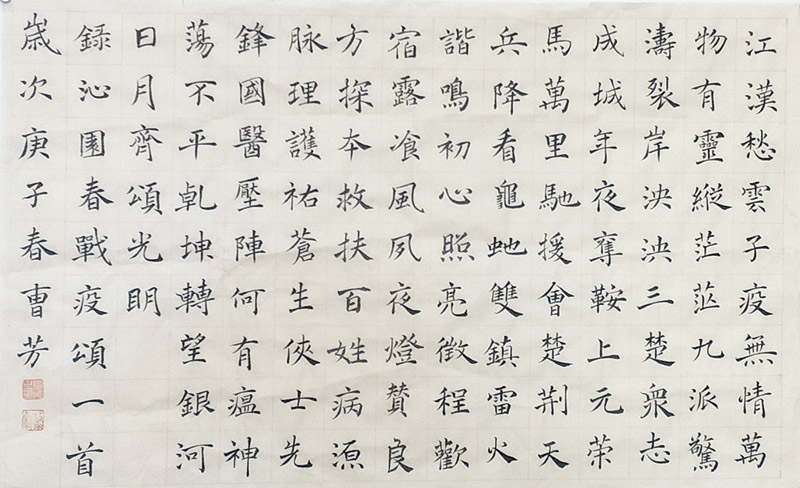 江漢愁雲子疫無情萬
物有靈縱茫茫九派驚
濤裂岸泱泱三楚衆志
成城年夜奪鞍上元荣
馬萬里馳援會楚荆天
兵降看龜虵雙鎮雷火
諧鳴初心照亮徵程歡
宿露飡風夙夜燈贊良
方探本救扶百姓病源
脉理護祐蒼生俠士先
鋒國醫壓陣何有瘟神
蕩不平乹坤轉望銀河
日月齊頌光眀
録沁園春戰疫頌一首
歲次庚子春曹芳